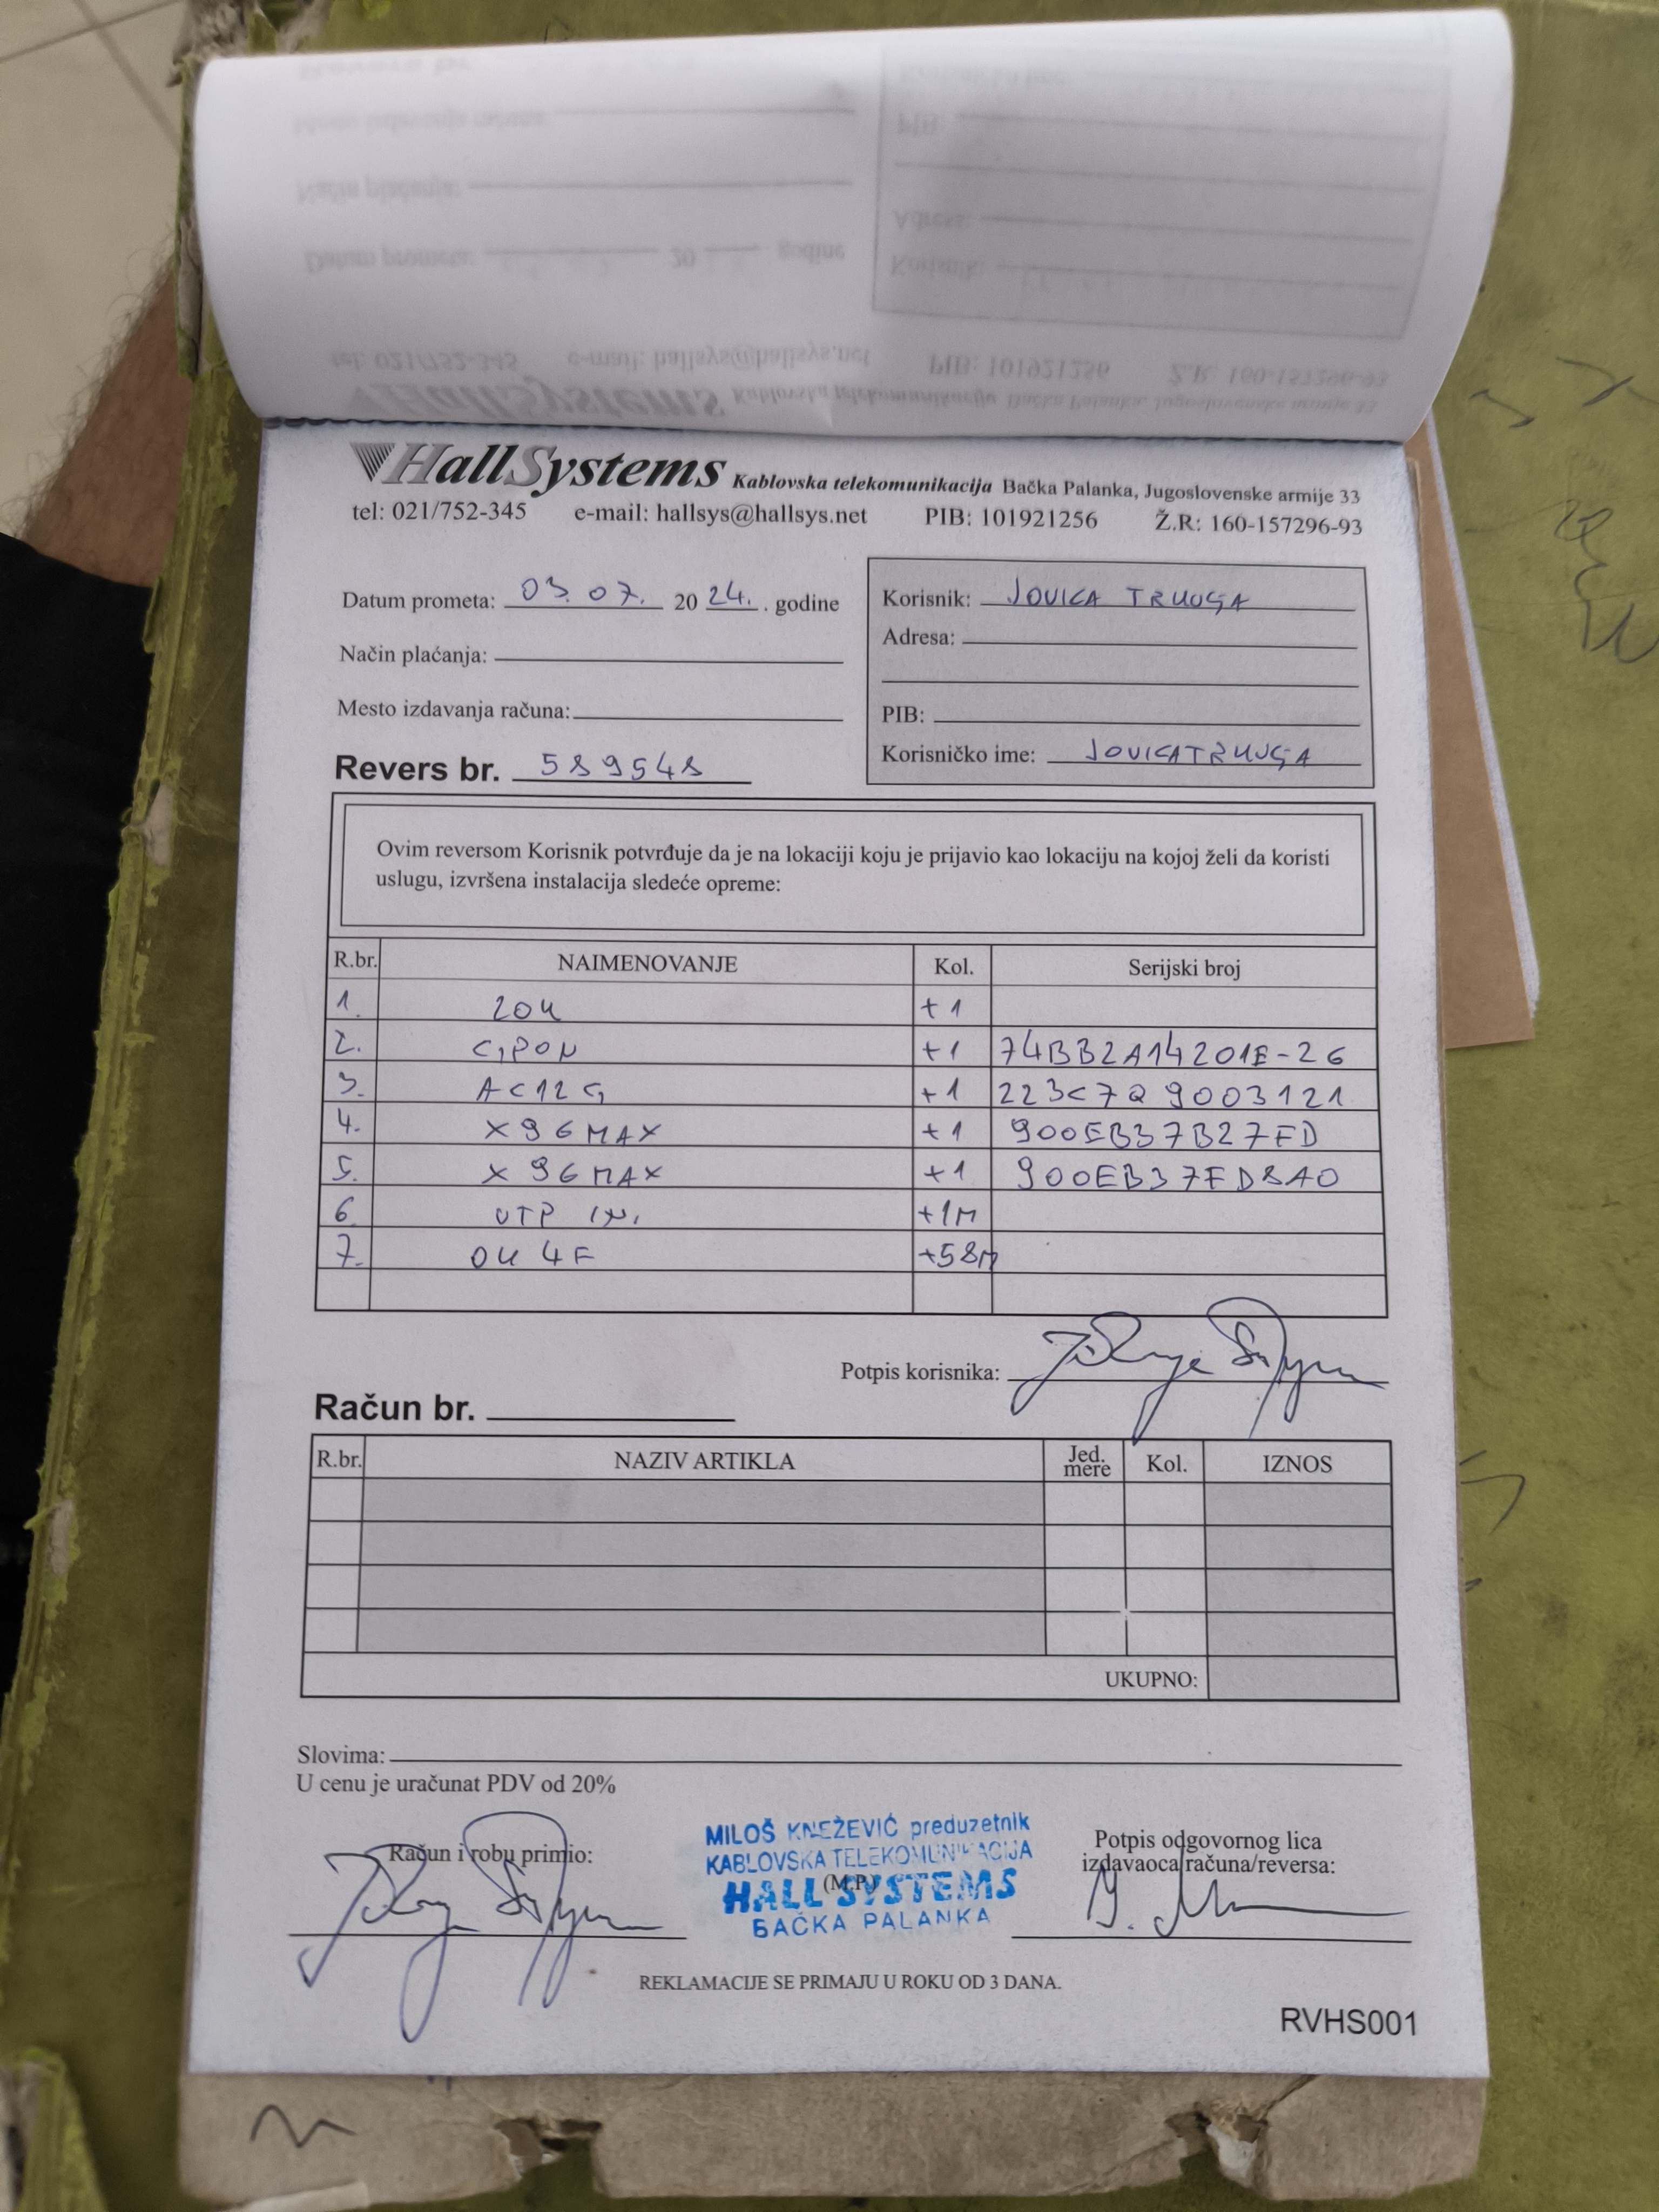 HallSystems Kablovska telekomunikacija Bačka Palanka, Jugoslovenske armije 33
tel: 021/752-345 e-mail: hallsys@hallsys.net PIB: 101921256 Ž.R: 160-157296-93
Datum prometa: 03.07. 2024. . godine
Način plaćanja:
Mesto izdavanja računa:
Revers br. 589548
Korisnik: JOVICA TRKULJA
Adresa:
PIB:
Korisničko ime: JOVICATRKULJA
Ovim reversom Korisnik potvrđuje da je na lokaciji koju je prijavio kao lokaciju na kojoj želi da koristi
uslugu, izvršena instalacija sledeće opreme:
R.br. NAIMENOVANJE Kol. Serijski broj
1. ZOK +1
2. GPON +1 74BB2A14201E-26
3. AC12G +1 223C7Q9003121
4. X96MAX +1 900EB37B27FD
5. X96MAX +1 900EB37FD8A0
6. UTP IN. +1M
7. OK 4F +58M
Potpis korisnika:
Račun br.
R.br. NAZIV ARTIKLA Jed. mere Kol. IZNOS
UKUPNO:
Slovima:
U cenu je uračunat PDV od 20%
Račun i robu primio:
MILOŠ KNEŽEVIĆ preduzetnik
KABLOVSKA TELEKOMUNIKACIJA
(M.P.)
HALL SYSTEMS
BAČKA PALANKA
Potpis odgovornog lica
izdavaoca računa/reversa:
REKLAMACIJE SE PRIMAJU U ROKU OD 3 DANA.
RVHS001